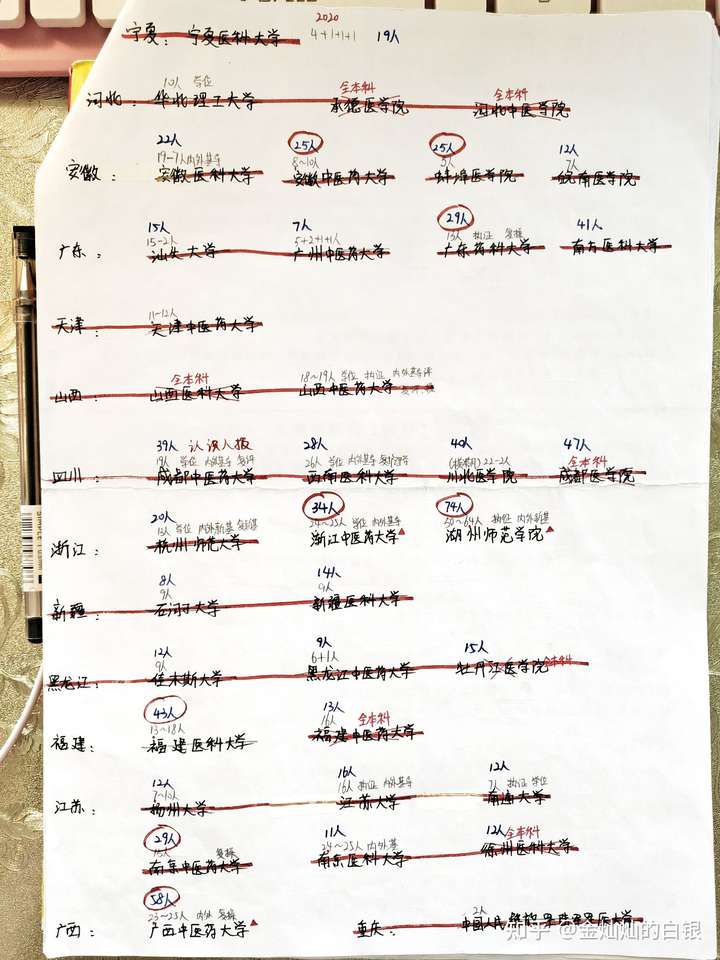 2020
宁夏: 宁夏医科大学 4+1+1+1 19人
10人 学位 全本科 全本科
河北: 华北理工大学 承德医学院 河北中医学院
22人 25人 25人 12人
19-7人内外基导 8~10人 5人 7人
安徽: 安徽医科大学 安徽中医药大学 蚌埠医学院 皖南医学院
15人 7人 29人 41人
15-2人 5+2+1+1人 13人 执证
广东: 汕头大学 广州中医药大学 广东药科大学 南方医科大学
11~12人
天津: 天津中医药大学
全本科 18~19人 学位 执证 内外基导
山西: 山西医科大学 山西中医药大学
39人 认识人报 28人 40人 47人
19人 学位 内外基导 26人 学位 内外基导 22-2人 全本科
四川: 成都中医药大学 西南医科大学 川北医学院 成都医学院
20人 34人 74人
15人 学位 内外新基 24~25人 学位 内外基导 50~64人 执证 内外新基
浙江: 杭州师范大学 浙江中医药大学 湖州师范学院
8人 14人
9人 9人
新疆: 石河子大学 新疆医科大学
12人 9人 15人
9人 6+1人
黑龙江: 佳木斯大学 黑龙江中医药大学 牡丹江医学院 全本科
43人 13人
13~18人 16人 全本科
福建: 福建医科大学 福建中医药大学
12人 16人 12人
7~10人 16人 执证 内外基导 7人 执证 学位
江苏: 扬州大学 江苏大学 南通大学
29人 11人 12人 全本科
15人 24~25人 内外基
南京中医药大学 南京医科大学 徐州医科大学
58人
23~25人 内外 2人
广西: 广西中医药大学 重庆: 中国人民
知乎 @金灿灿的白银